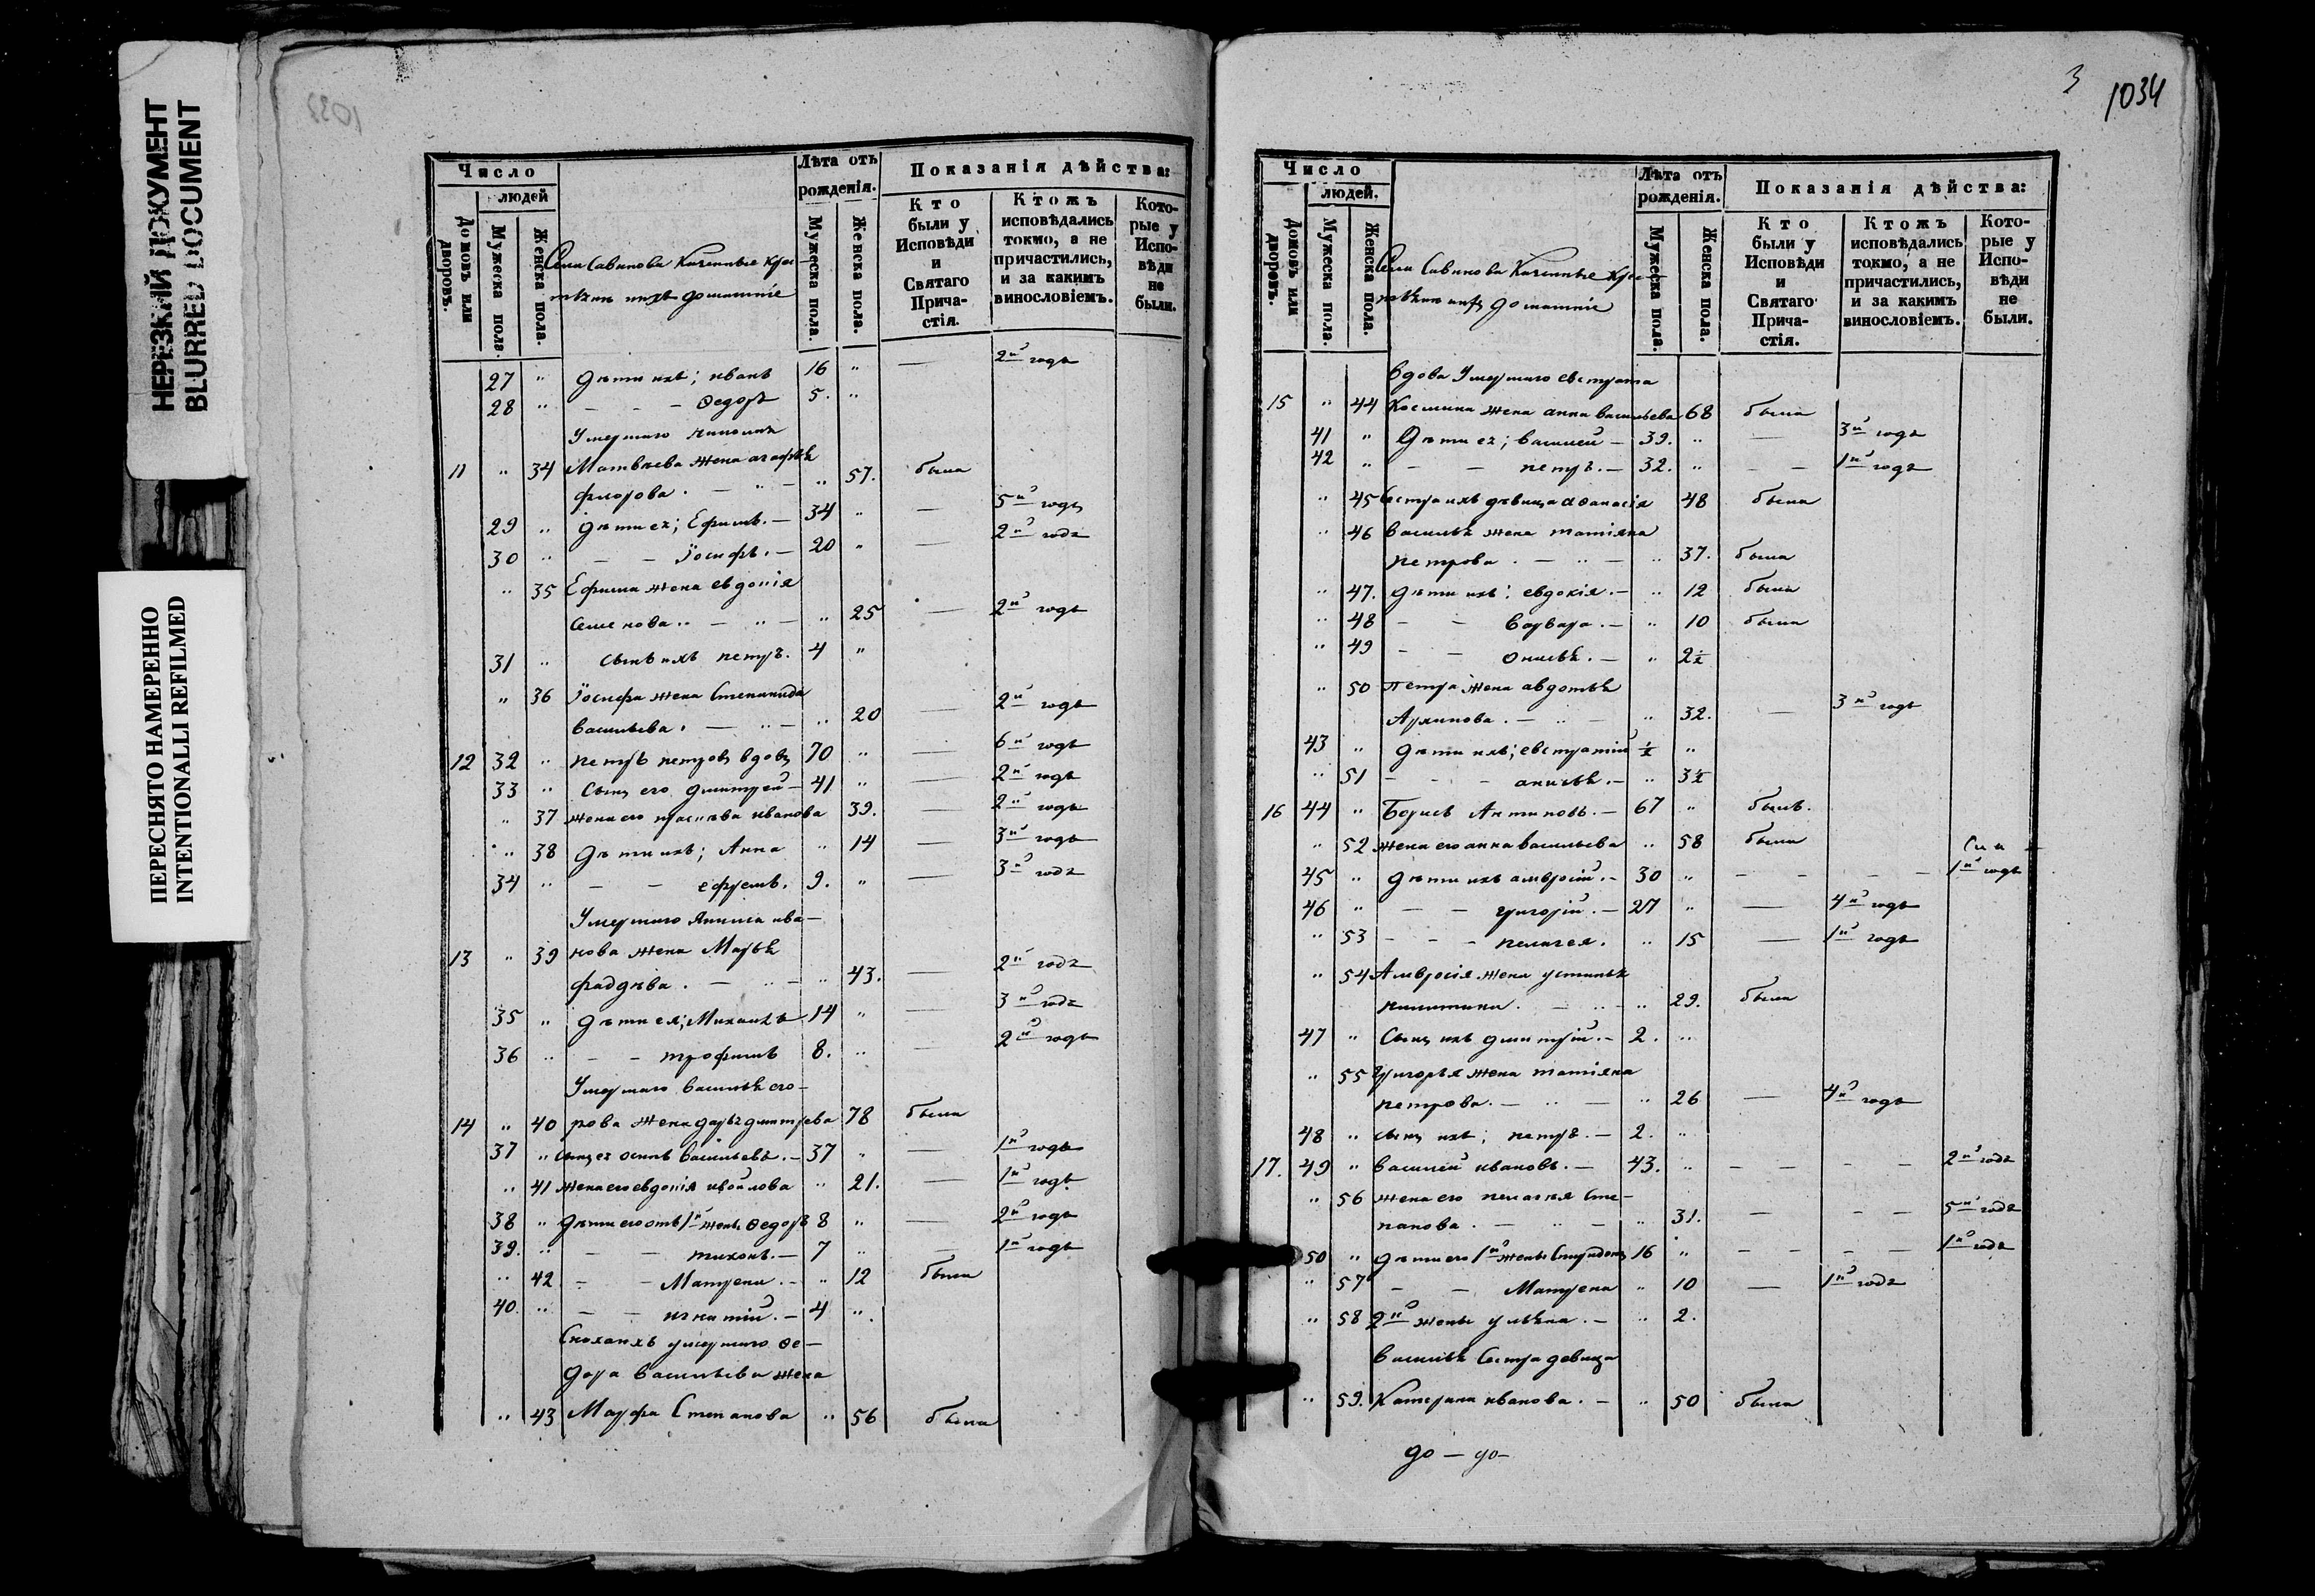 НЕРЕЗКИЙ ДОКУМЕНТ
BLURRED DOCUMENT
ПЕРЕСНЯТО НАМЕРЕННО
INTENTIONALLI REFILMED
Число
людей
Домовъ или дворовъ.
Мужеска пола.
Женска пола.
Села Савинова Казенные Кре-
стьяне и ихъ домашніе
Лѣта отъ рожденія.
Мужеска пола.
Женска пола.
Показанія дѣйства:
Кто были у Исповѣди и Святаго Причастія.
Ктожъ исповѣдались токмо, а не причастились, и за какимъ винословіемъ.
Которые у Исповѣди не были.
27 " дѣти ихъ; иванъ 16 " — 2й годъ
28 " — — Ѳедоръ 5. "
Умершаго
11 " 34 Матвѣева жена агафья
фролова. — " — " 57. была
29 " дѣти ея; Ефимъ. — 34 " — 5й годъ
30 " — — Іосифъ. — 20 " — 2й годъ
" 35 Ефима жена евдокія
Семенова " — " — " 25 — 2й годъ
31 " сынъ ихъ петръ. 4 "
" 36 Іосифа жена Степанида
васильева. — " — " 20 — 2й годъ
12 32 " петръ петровъ вдовъ 70 " — 6й годъ
33 " Сынъ его димитрей — 41 " — 2й годъ
" 37 жена его прасковья иванова 39. — 2й годъ
" 38 дѣти ихъ; Анна " 14 — 3й годъ
34 " — — ефремъ. 9. " — 3й годъ
Умершаго ива—
13 " 39 нова жена Марья
фадѣева. — " — " 43. — 2й годъ
35 " дѣти ея; Михаилъ 14 " — 3й годъ
36 " — — трофимъ 8. " — 2й годъ
Умершаго василья его—
14 " 40 рова жена дарья дмитрева 78 была
37 " сынъ ея осипъ васильевъ. — 37 " — 1й годъ
" 41 жена его евдокія " 21. — 1й годъ
38 " дѣти его отъ 1й жены Ѳедоръ 8 " — 2й годъ
39. " — — тихонъ. — 7 " — 1й годъ
" 42 — — Матрена. — " 12 была
40. " — — игнатій. — 4 ".
умершаго Ѳе—
дора васильева жена
" 43 Марфа Степанова " 56 была
3
1034
Число
людей.
Домовъ или дворовъ.
Мужеска пола.
Женска пола.
Села Савинова Казенные Кре-
стьяне и ихъ домашніе
Лѣта отъ рожденія.
Мужеска пола.
Женска пола.
Показанія дѣйства:
Кто были у Исповѣди и Святаго Причастія.
Ктожъ исповѣдались токмо, а не причастились, и за какимъ винословіемъ.
Которые у Исповѣди не были.
вдова Умершаго евстрата
15 " 44 Космина жена анна васильева 68 была
41 " Дѣти ея; василей — 39. " — 3й годъ
42 " — — петръ. — 32. " — — 1й годъ
" 45 Сестра ихъ дѣвица аѳанасія 48 была
" 46 василья жена татіяна
петрова. — " — " 37. была
" 47. дѣти ихъ: евдокія. — " 12 была
" 48 — — варвара. — " 10 была
" 49 — — " 2½
" 50 Петра жена авдотья
Архипова. — " — " 32. — 3й годъ
43 " дѣти ихъ; евстратій ½ "
" 51 — — — анисья. — " 3½
16 44 " Борисъ Антиповъ. — 67 " былъ.
" 52 жена его анна васильева " 58 была
45 " дѣти ихъ амвросій. — 30 " — — — — 1й годъ
46 " — — григорій. — 27 " — 4й годъ
" 53 — — — пелагея. " 15 — 1й годъ
" 54 Амвросія жена устинья
никитина. — " — " 29. была
47 " Сынъ ихъ дмитрій. — 2. "
" 55 Григорья жена татіяна
петрова. — " — " 26 — 4й годъ
48 " сынъ ихъ; петръ. — 2. "
17. 49 " василей ивановъ. — 43. " — — — — 2й годъ
" 56 жена его пелагея Сте—
панова. — " — " 31. — — — 5й годъ
50 " дѣти его 1й жены Спиридонъ 16 " — — — — 1й годъ
" 57 — — Матрена " 10 — 1й годъ
" 58 2й жены ульяна. — " 2.
василья Сестра девица
" 59. Катерина иванова. — " 50 была
до — до—